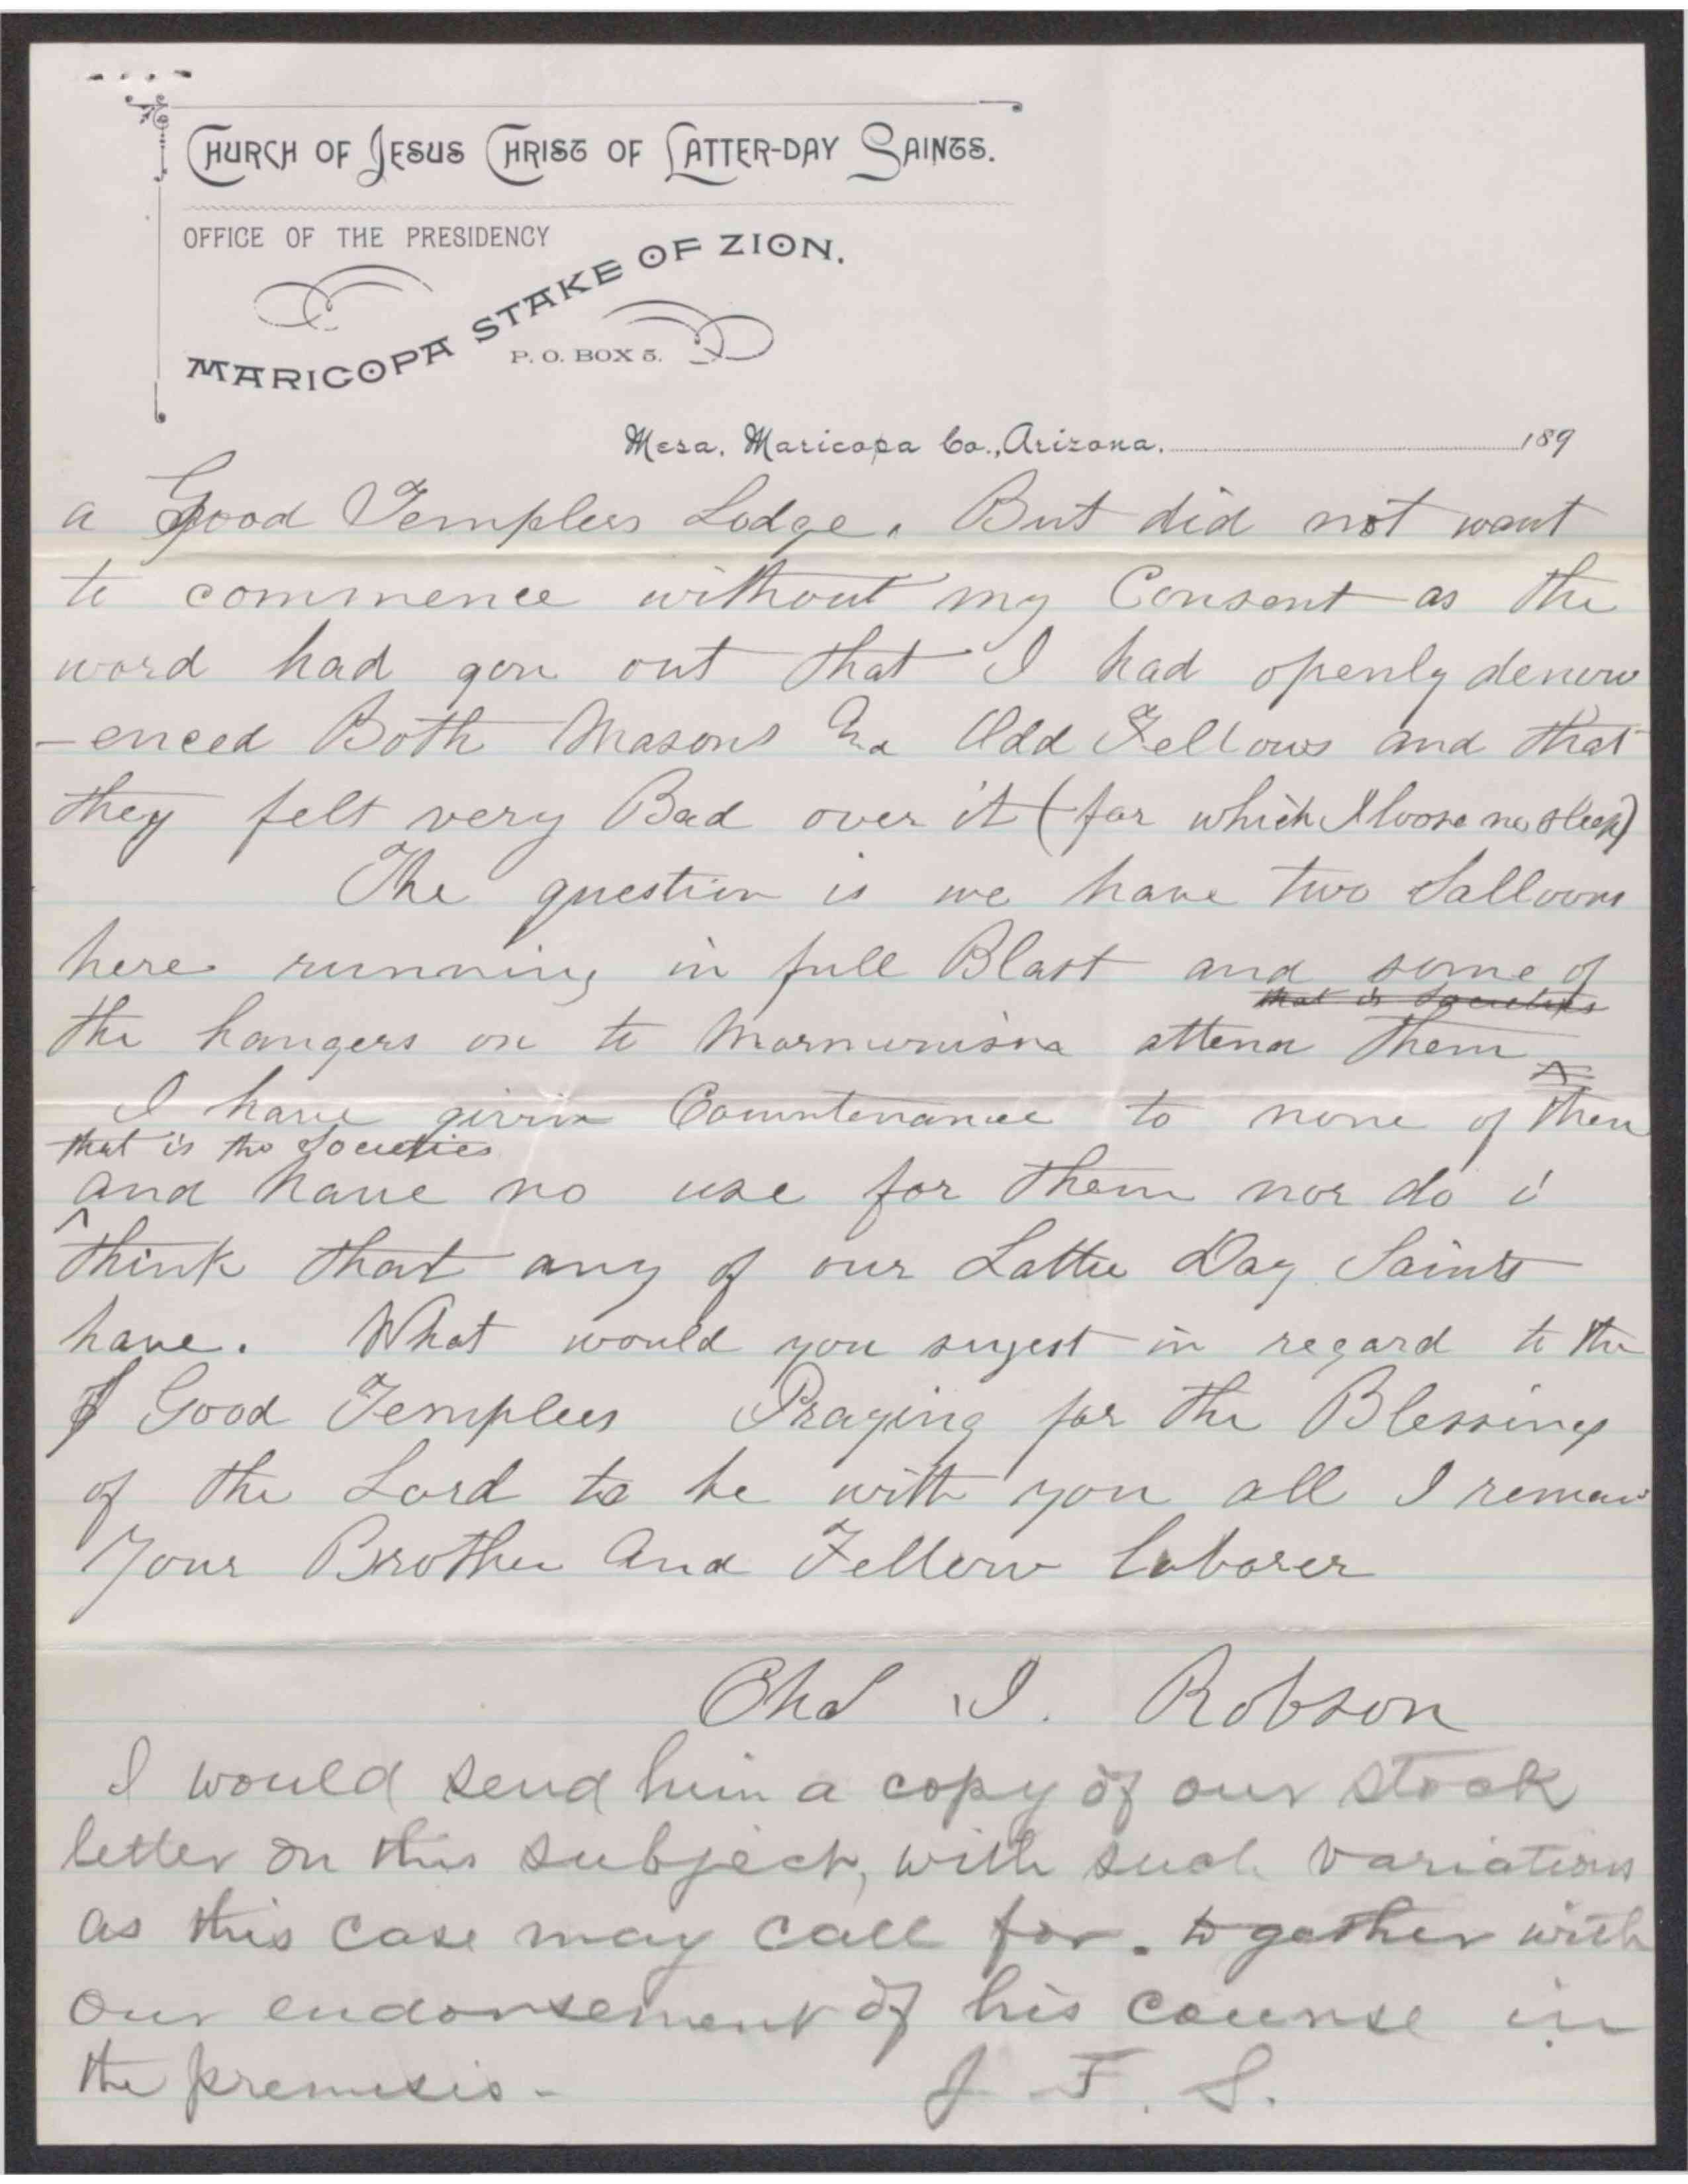 CHURCH OF JESUS CHRIST OF LATTER-DAY SAINTS.
OFFICE OF THE PRESIDENCY
MARICOPA STAKE OF ZION.
P. O. BOX 5.
Mesa, Maricopa Co., Arizona. 189
a Good Templers Lodge. But did not want
to commence without my Consent as the
word had gon out that I had openly denow
-enced Both Masons And Odd Fellows and that
they felt very Bad over it (for which I loose no sleep)
The question is we have two Salloons
here running in full Blast and some of
that is Societies
the hangers on to Mormonism attend them
I have givin Countenance to none of then
that is the Societies
and have no use for them nor do i
think that any of our Latter Day Saints
have. What would you sugest in regard to the
Good Templers Praying for the Blessings
of the Lord to be with you all I remain
Your Brother And Fellow Laborer
Chas I. Robson
I would send him a copy of our stock
letter on this subject, with such variations
as this case may call for. together with
our endorsement of his course in
the premisis -
J. F. S.